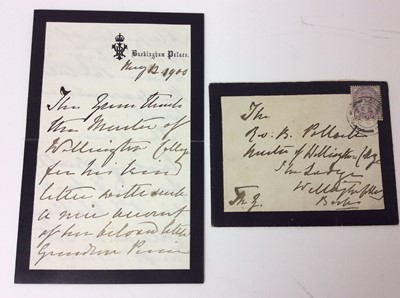 Buckingham Palace.
May 12 1900
The Queen thanks
the Master of
Wellington College
for his kind
letter with such
a nice account
of her beloved little
Grandson Prince
The
Rev. B. Pollock
Master of Wellington College
The Lodge
Wellington College
Berks
The Q.